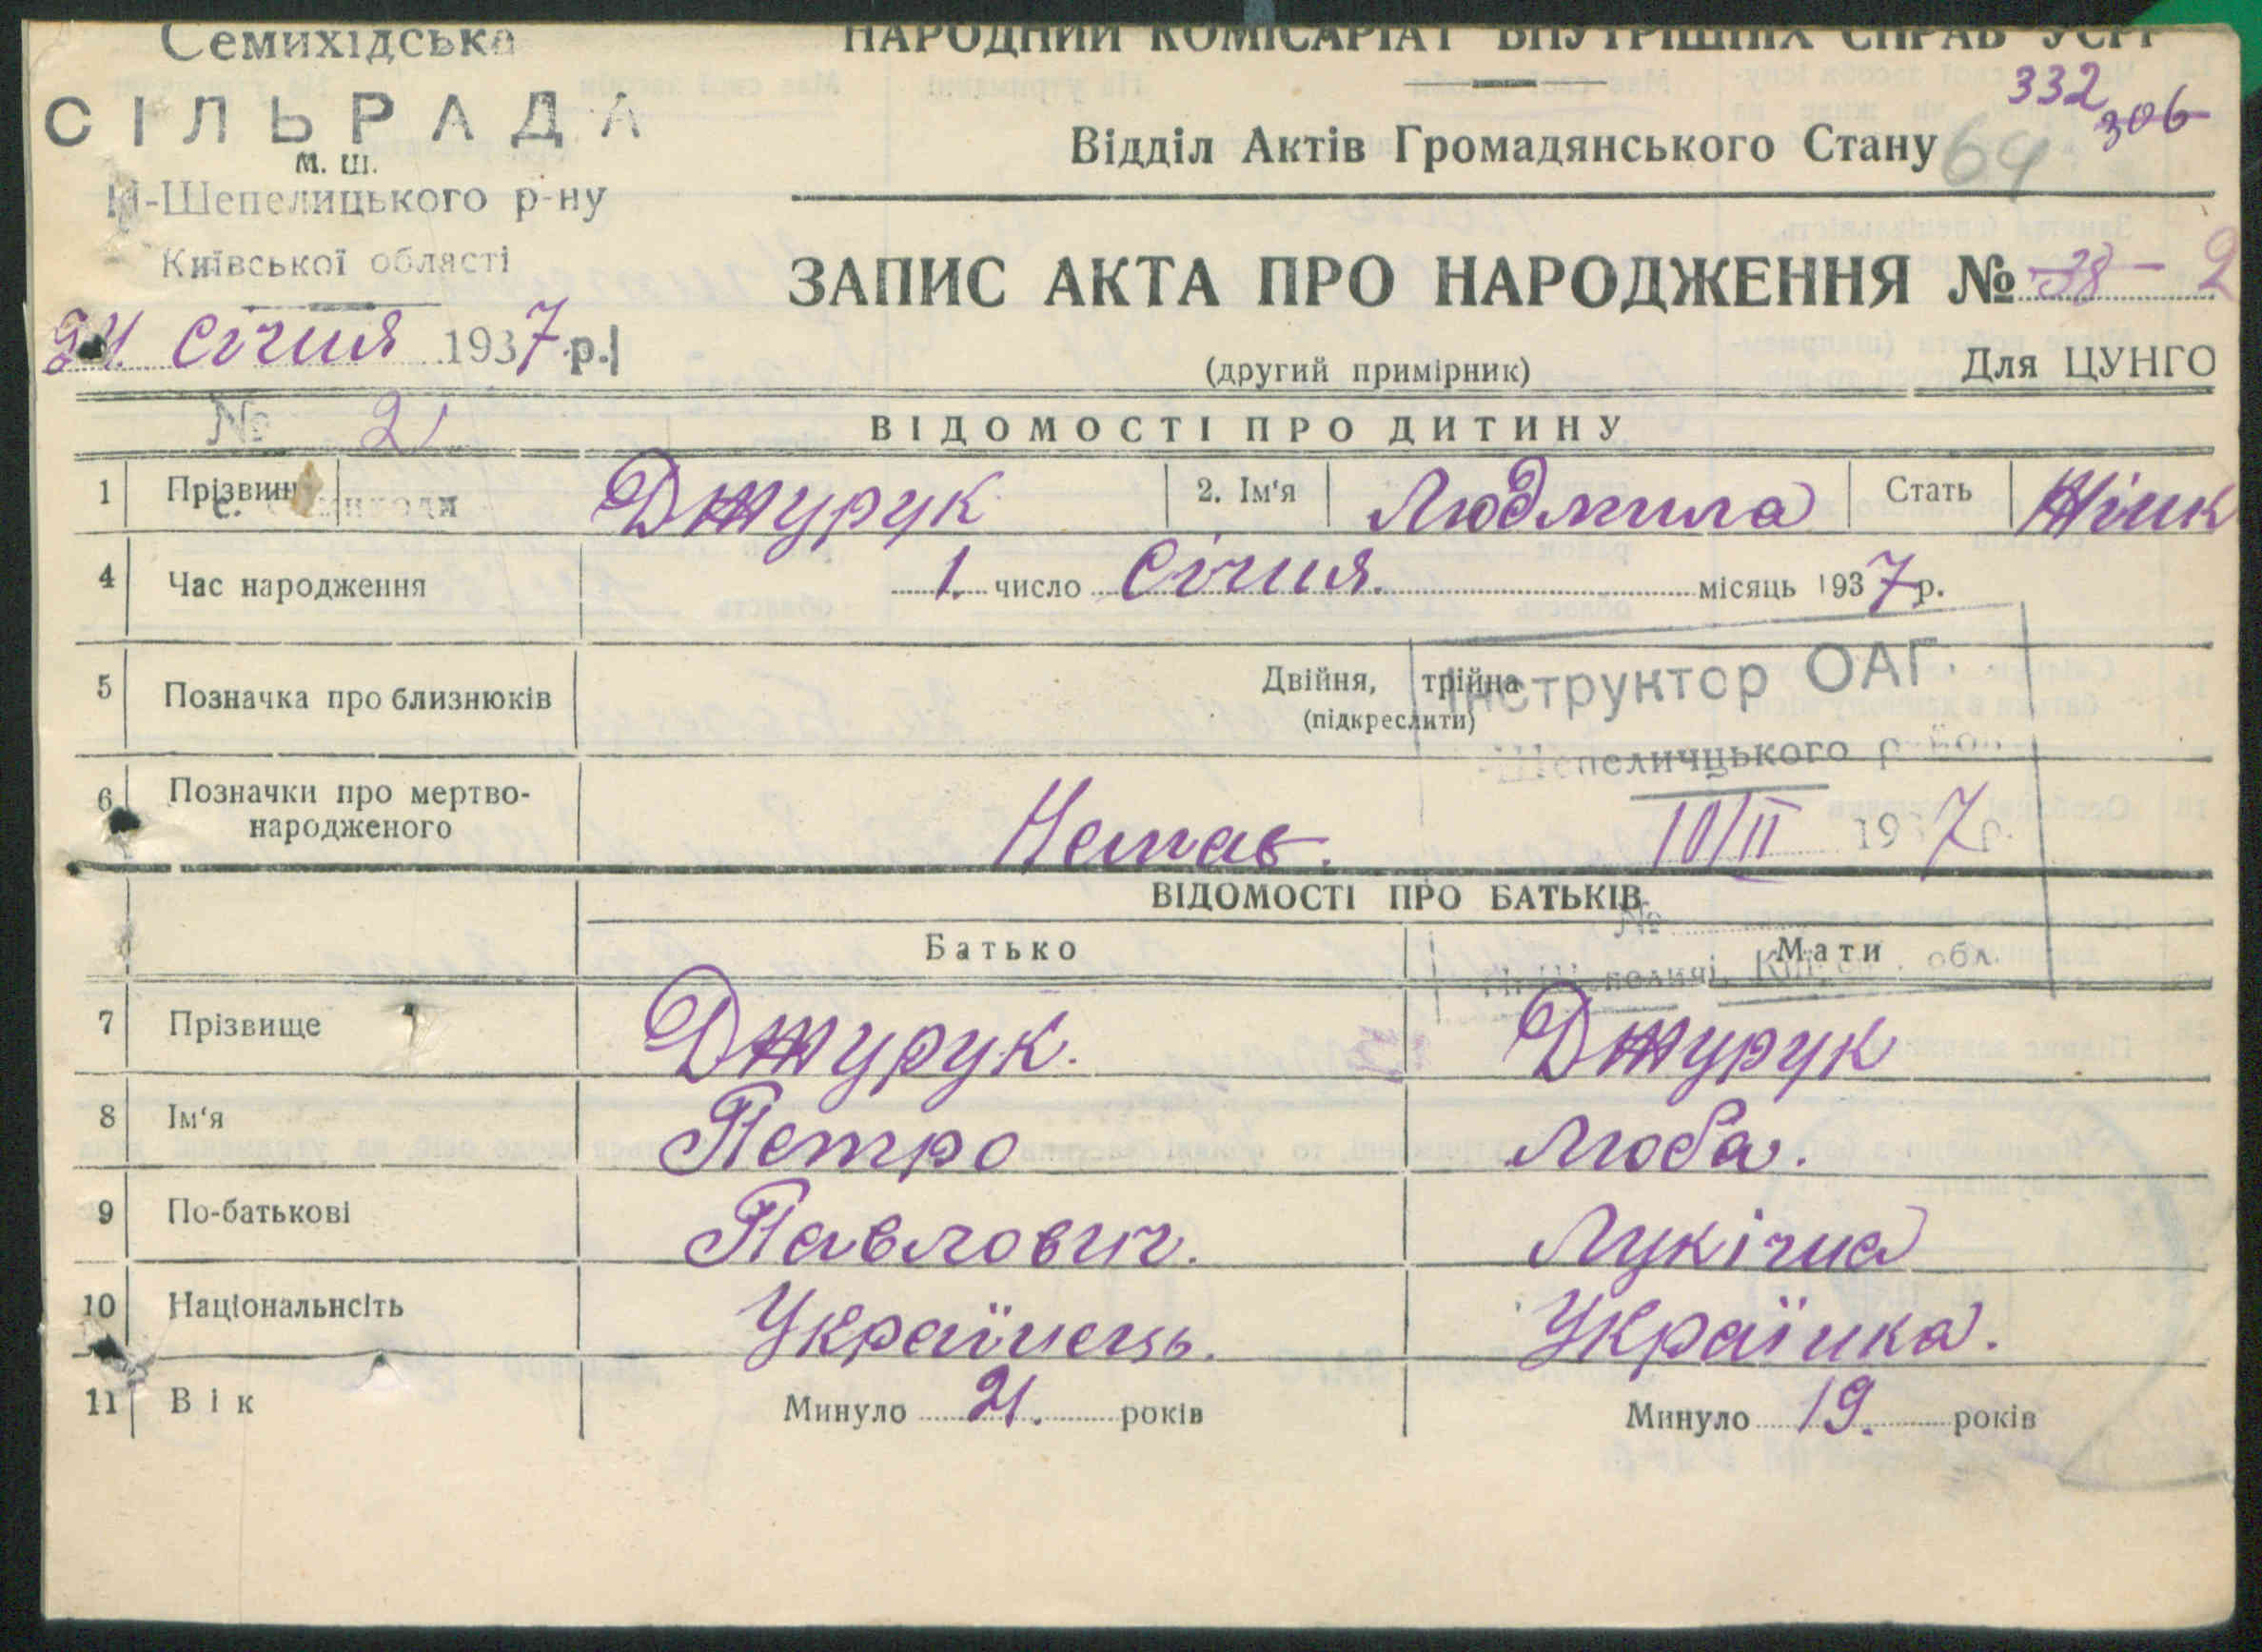 Семихідська
СІЛЬРАДА
м. ш.
-Шепелицького р-ну
Київської області
24 січня 1937 р.
№ 2
НАРОДНИЙ КОМІСАРІАТ ВНУТРІШНІХ СПРАВ УСРР
332
306
Відділ Актів Громадянського Стану 64
ЗАПИС АКТА ПРО НАРОДЖЕННЯ № 38 - 2
(другий примірник) Для ЦУНГО
ВІДОМОСТІ ПРО ДИТИНУ
1 Прізвищ Джурук 2. Ім'я Людмила Стать Жінк
4 Час народження 1. число Січня. місяць 1937 р.
5 Позначка про близнюків Двійня, трійна
(підкреслити)
Інструктор ОАГ.
Шепеличцького
6 Позначки про мертво-
народженого Немає.
10/II 1937 р.
ВІДОМОСТІ ПРО БАТЬКІВ
№
Батько Мати
обл.
7 Прізвище Джурук. Джурук
8 Ім'я Петро Люба.
9 По-батькові Павлович. Лукічна
10 Національнсіть Українець. Українка.
11 Вік Минуло 21. років Минуло 19. років